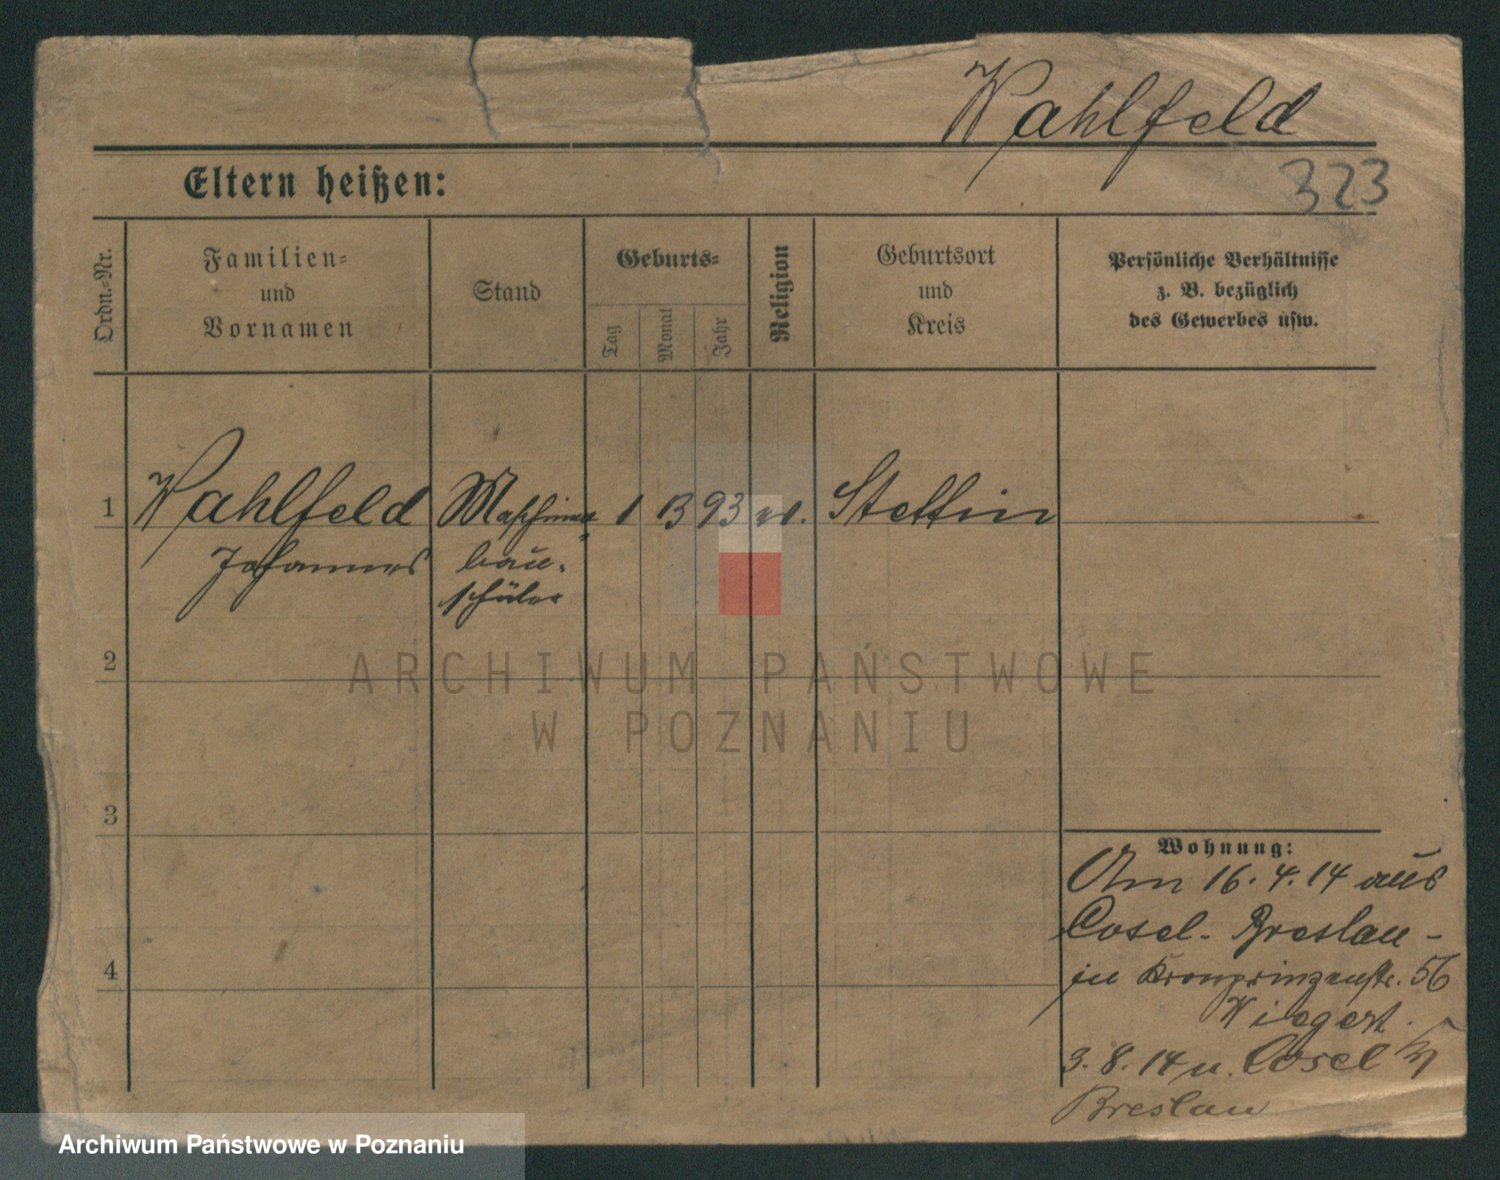 Wahlfeld
323
Eltern heißen:
Ordn.=Nr.
Familien=
und
Vornamen
Stand
Geburts=
Tag
Monat
Jahr
Religion
Geburtsort
und
Kreis
Persönliche Verhältnisse
z. B. bezüglich
des Gewerbes usw.
1 Wahlfeld Maschinen= 1 93 ev. Stettin
Johannes bau=
schüler
2
ARCHIWUM PAŃSTWOWE
W POZNANIU
3
4
Wohnung:
Am 16.4.14 aus
Cosel - Breslau -
in Kronprinzenstr. 56
Wiegert.
3.8.14 n. Cosel
Breslau
Archiwum Państwowe w Poznaniu